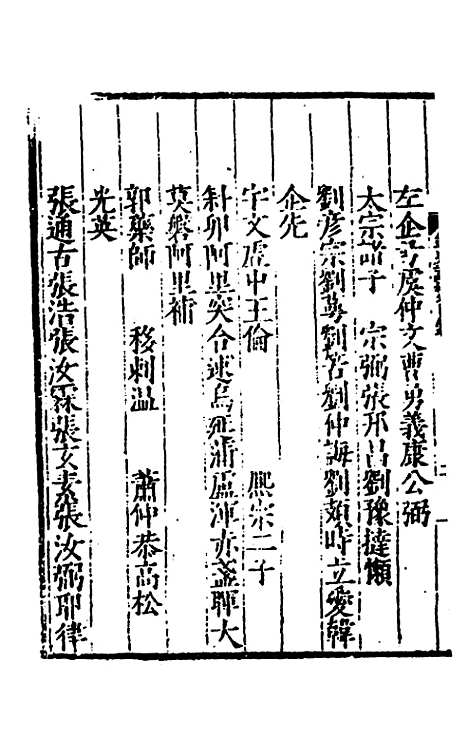 左企弓虞仲文曹勇義康公弼
太宗諸子　宗弼張邦昌劉豫撻懶
劉彦宗劉蕚劉筈劉仲誨劉頍時立愛韓
企先
宇文虚中王倫　熙宗二子
斜卯阿里突合速烏延蒲盧渾赤盞暉大
㚖磐阿里補
郭藥師　移剌温　蕭仲恭高松
光英
張通古張浩張汝霖張玄素張汝弼耶律